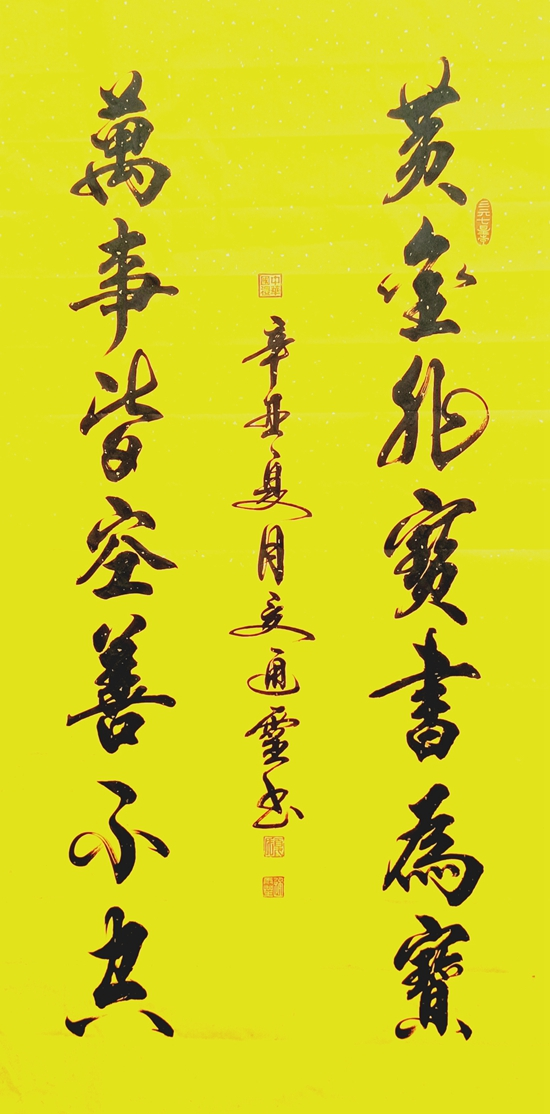 黄金非寶書為寶
辛丑夏月通靈书
萬事皆空善不空